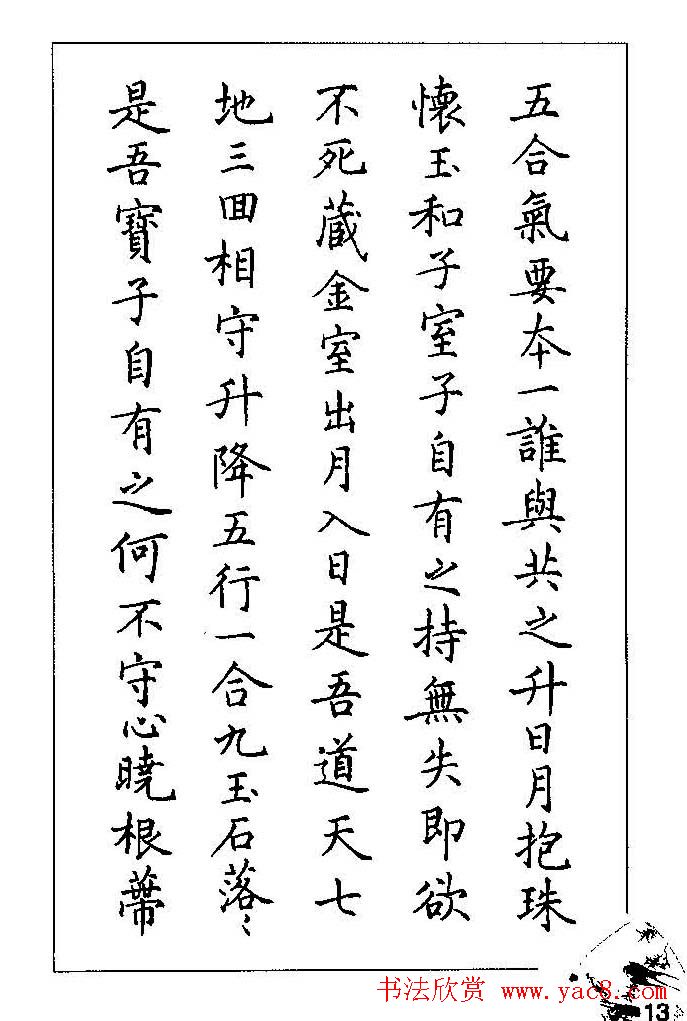 五合氣要本一誰與共之升日月抱珠
懷玉和子室子自有之持無失即欲
不死藏金室出月入日是吾道天七
地三回相守升降五行一合九玉石落〻
是吾寶子自有之何不守心曉根蒂
书法欣赏 www.yac8.com
13